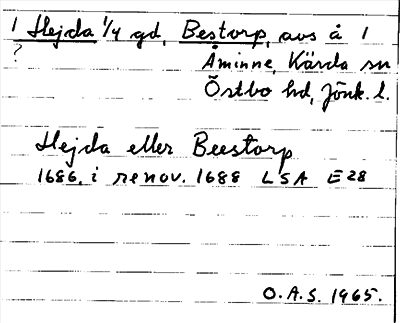 1 Hejda 1/4 gd, Bestorp, avs å 1
? Åminne, Kärda sn
Östbo hd, Jönk. l.
Hejda eller Beestorp
1686, i renov. 1688 LSA E28
O.A.S. 1965.